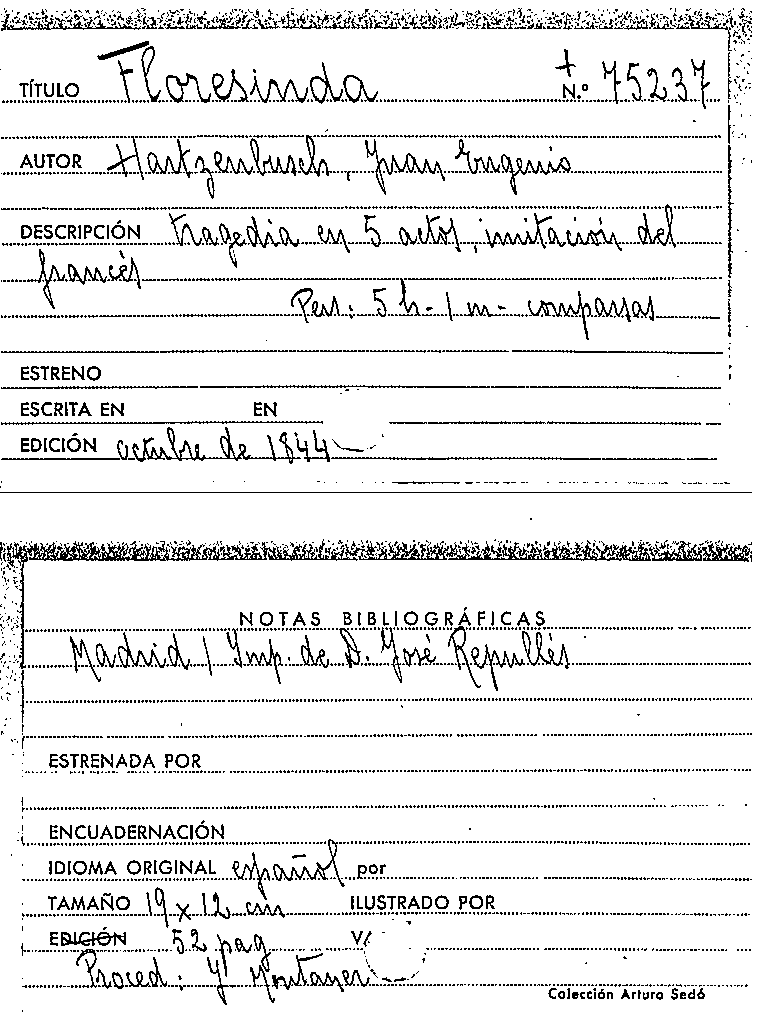 TÍTULO Floresinda + N.º 75237
AUTOR Hartzenbusch, Juan Eugenio
DESCRIPCIÓN tragedia en 5 actos, imitación del
francés
Pers: 5 h - 1 m - comparsas
ESTRENO
ESCRITA EN EN
EDICIÓN octubre de 1844
NOTAS BIBLIOGRÁFICAS
Madrid / Imp. de D. José Repullés
ESTRENADA POR
ENCUADERNACIÓN
IDIOMA ORIGINAL español por
TAMAÑO 19 x 12 cm ILUSTRADO POR
EDICIÓN 52 pag V/
Proced: Montaner
Colección Arturo Sedó